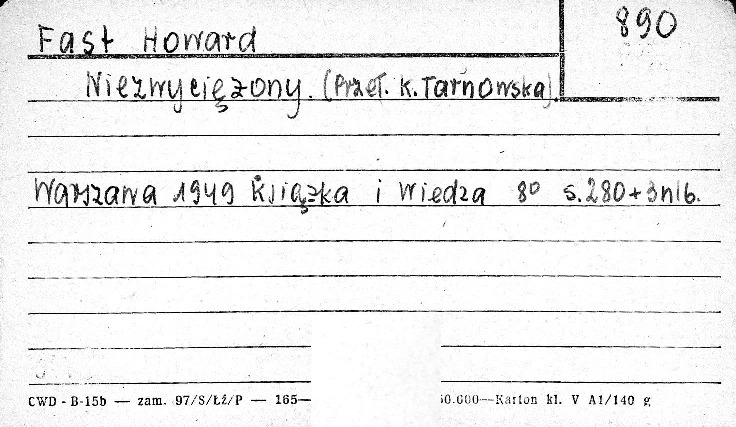 Fast Howard
890
Niezwyciężony. (Przeł. K. Tarnowska).
Warszawa 1949 Książka i Wiedza 8° s. 280 + 3 nlb.
CWD - B-15b — zam. 97/S/Łź/P — 165— 50.000—Karton kl. V A1/140 g